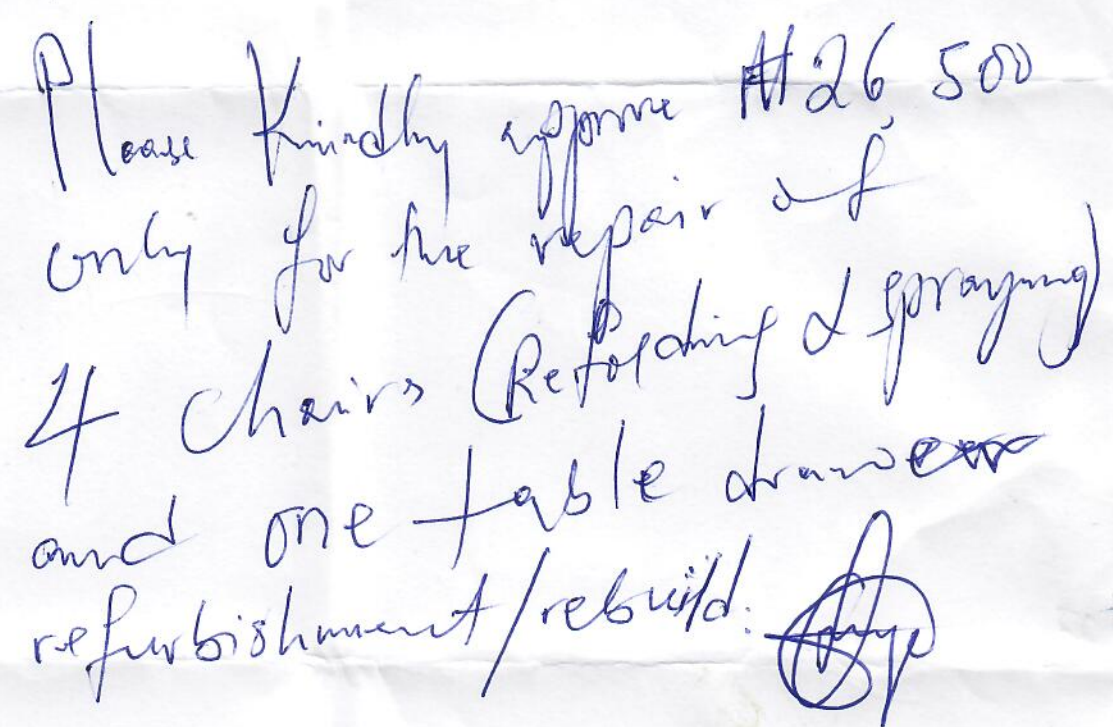 Please Kindly approve ₦26,500
only for the repair of
4 chairs (Refolding & spraying)
and one table drawer
refurbishment/rebuild.